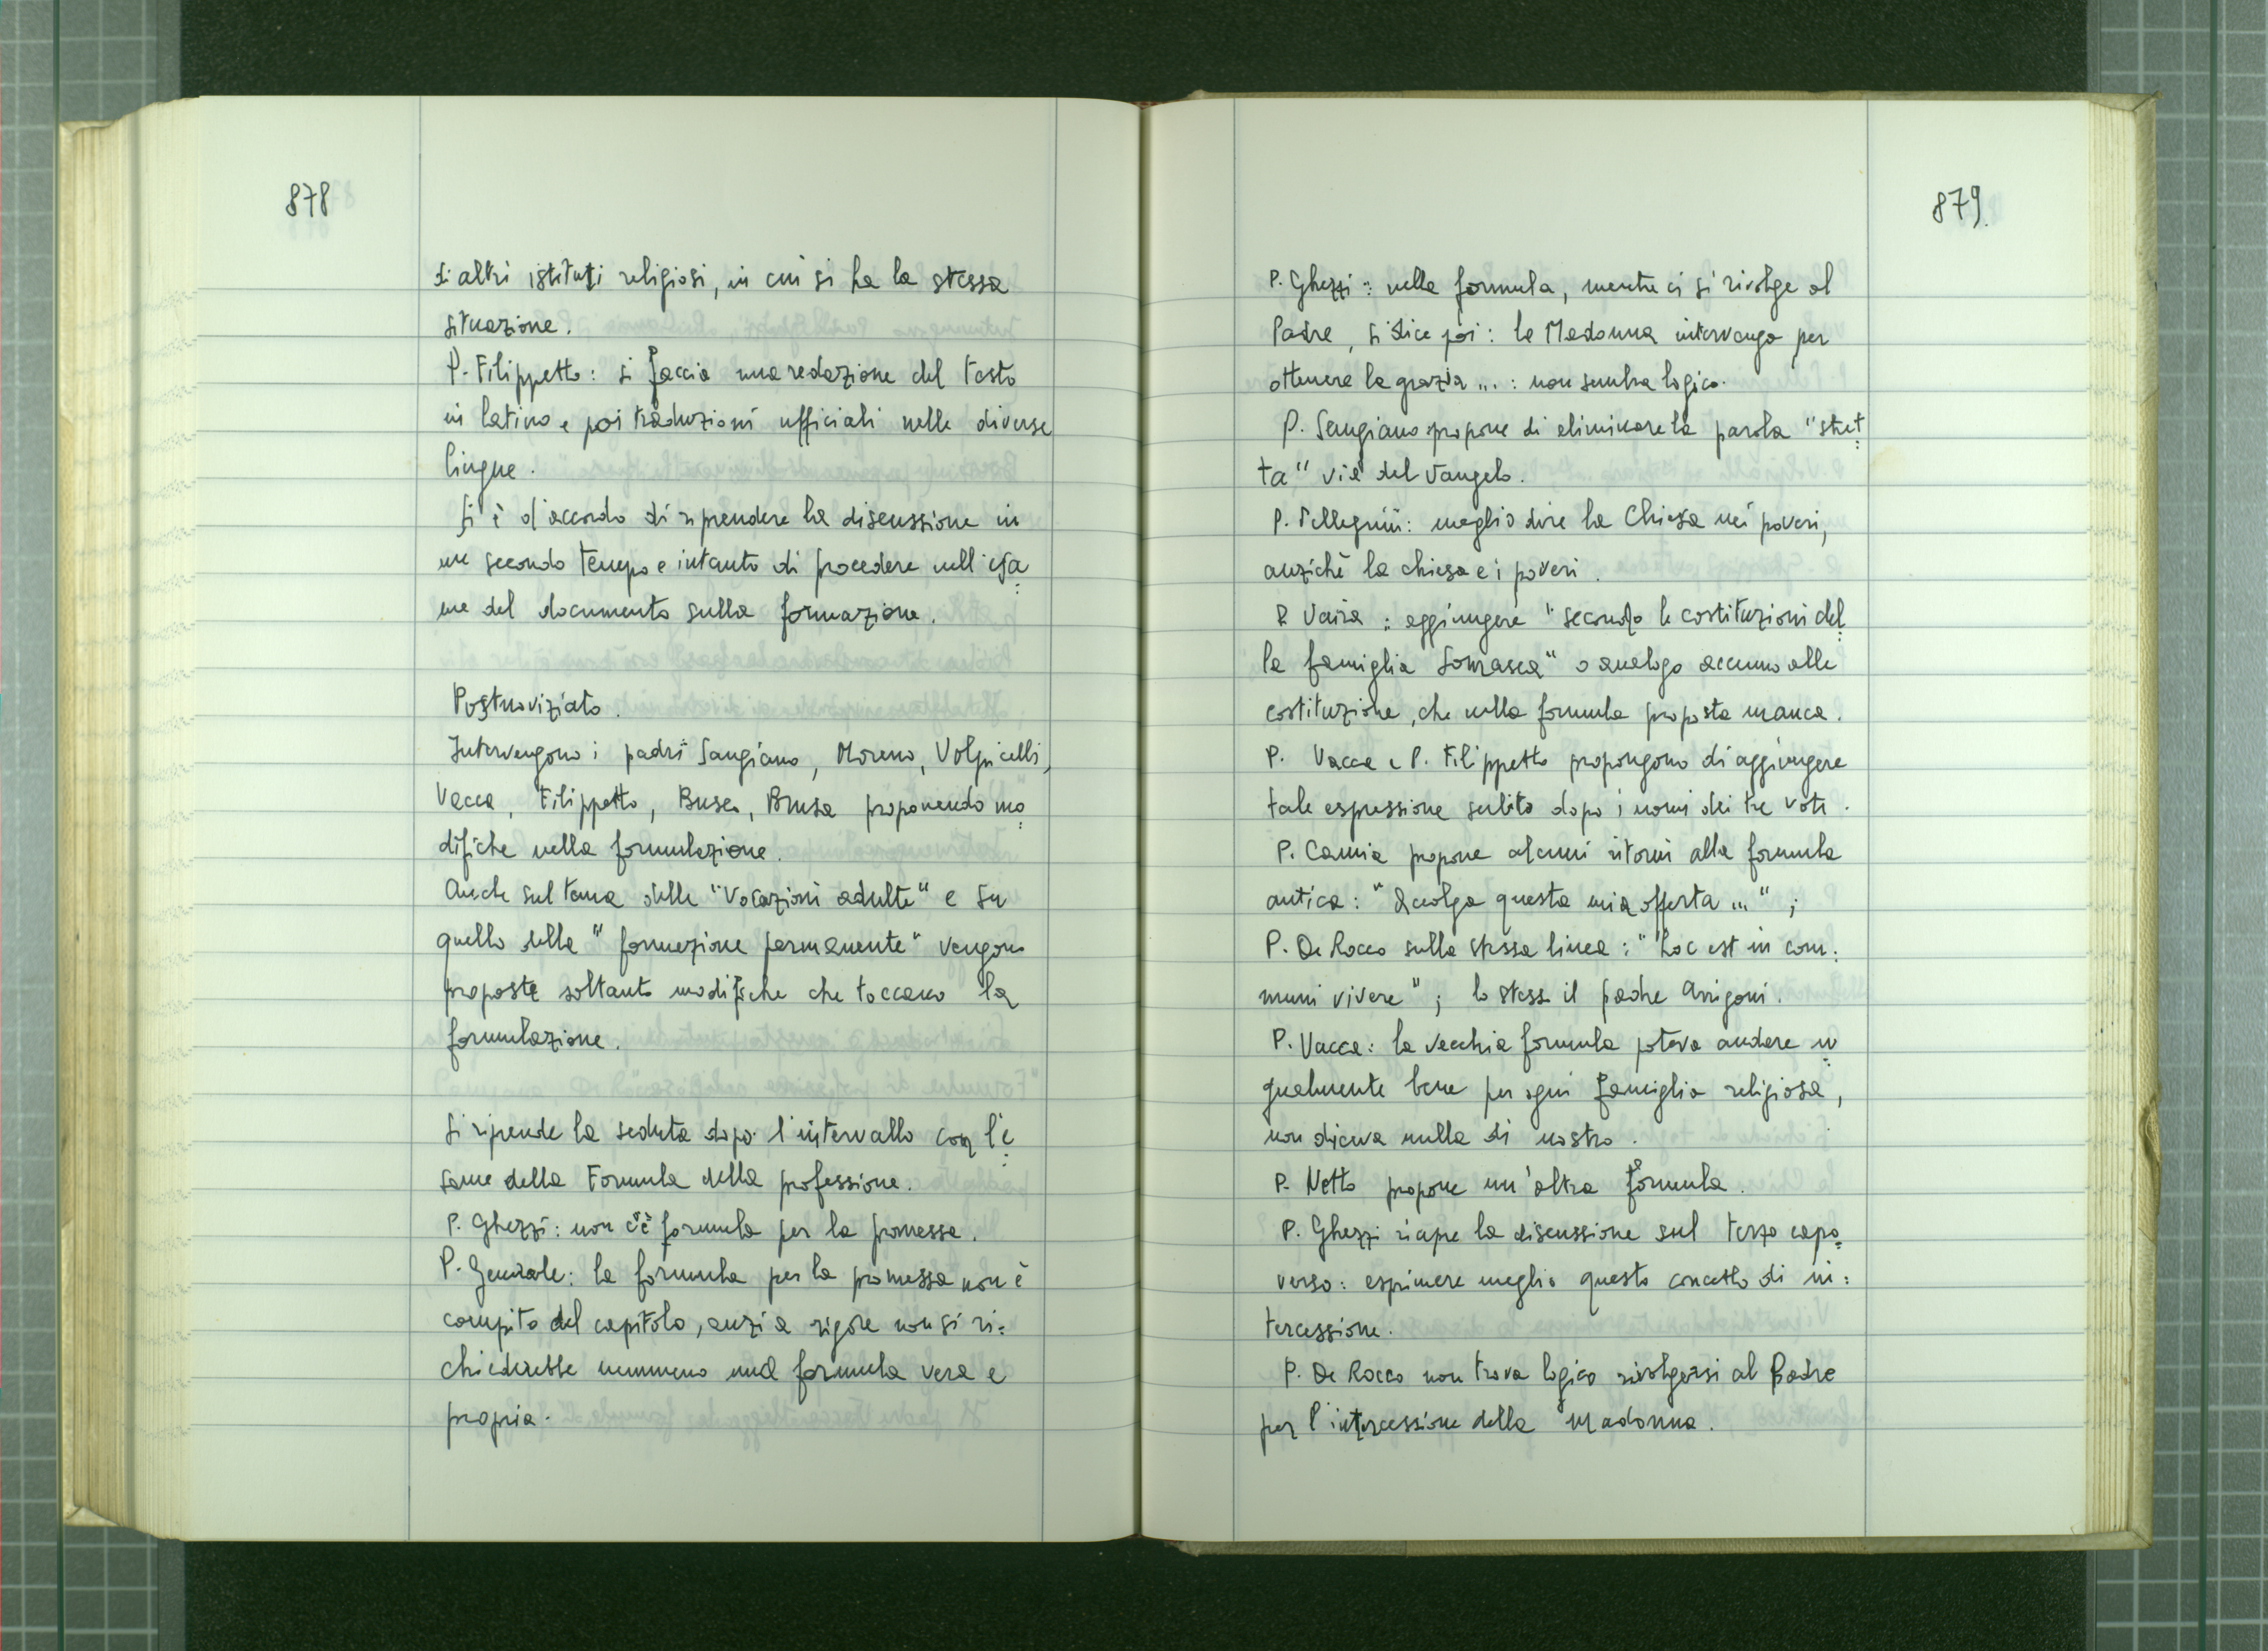 878
di altri istituti religiosi, in cui si ha la stessa
situazione.
P. Filippetto: si faccia una redazione del testo
in latino e poi traduzioni ufficiali nelle diverse
lingue.
Si è d'accordo di riprendere la discussione in
un secondo tempo e intanto di procedere nell'esa=
me del documento sulla formazione.
Postnoviziato.
Intervengono i padri Sangiano, Moreno, Volpicelli,
Vacca, Filippetto, Busco, Brusa proponendo mo=
difiche nella formulazione.
Anche sul tema delle "Vocazioni adulte" e su
quello della "formazione permanente" vengono
proposte soltanto modifiche che toccano la
formulazione.
Si riprende la seduta dopo l'intervallo con l'e=
same della Formula della professione.
P. Ghezzi: non c'è formula per la promessa.
P. Generale: la formula per la promessa non è
compito del capitolo, anzi a rigore non si ri=
chiederebbe nemmeno una formula vera e
propria.
879.
P. Ghezzi: nella formula, mentre ci si rivolge al
Padre, si dice poi: la Madonna intervenga per
ottenere la grazia...: non sembra logico.
P. Sangiano propone di eliminare la parola "stret=
ta" via del Vangelo.
P. Pellegrini: meglio dire la Chiesa nei poveri,
anziché la chiesa e i poveri.
P. Vaira: aggiungere "secondo le costituzioni del=
la famiglia Somasca" o analogo accenno alle
costituzione, che nella formula proposta manca.
P. Vacca e P. Filippetto propongono di aggiungere
tale espressione subito dopo i nomi dei tre voti.
P. Camia propone alcuni ritorni alla formula
antica: "Accolga questa mia offerta ...";
P. De Rocco sulla stessa linea: "hoc est in com=
muni vivere"; lo stesso il padre Arrigoni.
P. Vacca: la vecchia formula poteva andare u=
gualmente bene per ogni famiglia religiosa,
non diceva nulla di nostro.
P. Netto propone un'altra formula.
P. Ghezzi riapre la discussione sul terzo capo=
verso: esprimere meglio questo concetto di in=
tercessione.
P. De Rocco non trova logico rivolgersi al Padre
per l'intercessione della Madonna.